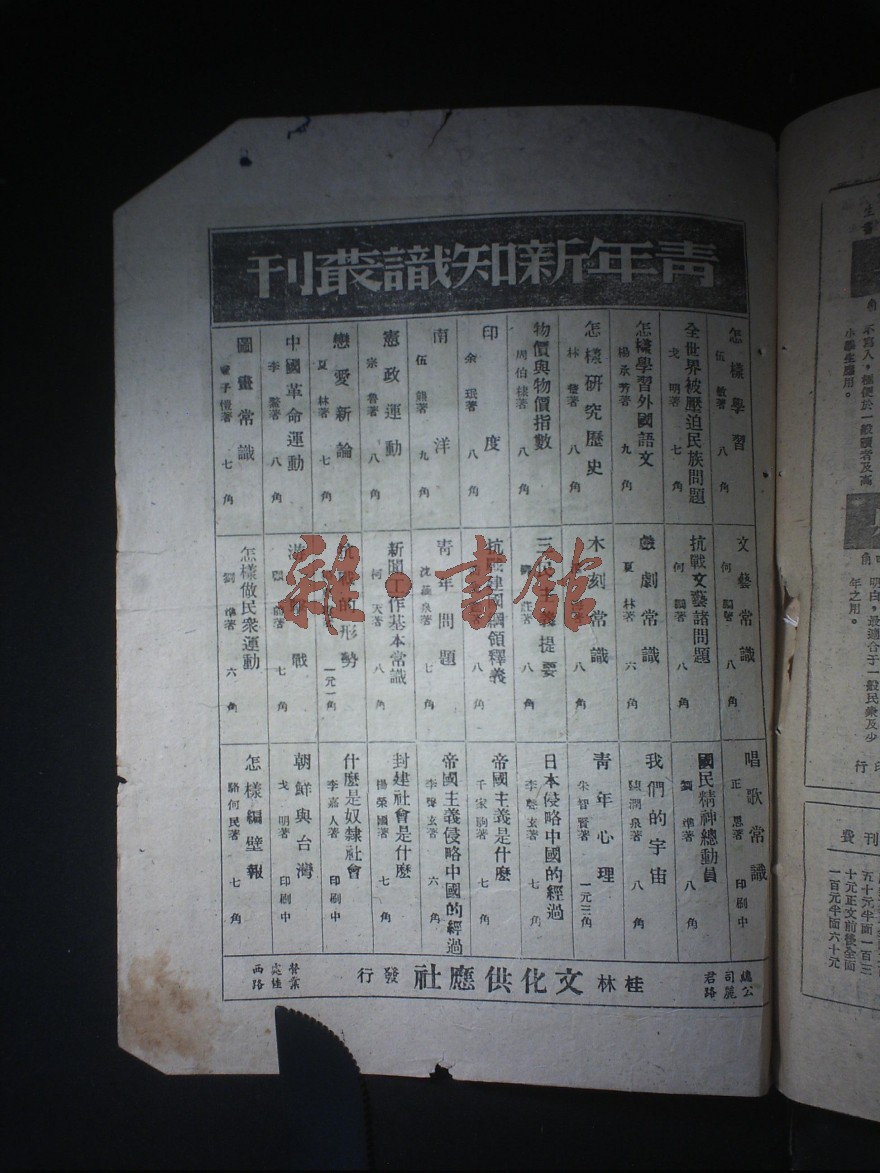 青年新知識叢刊
怎樣學習
伍敏著 八角
全世界被壓迫民族問題
戈明著 七角
怎樣學習外國語文
楊承芳著 九角
怎樣研究歷史
林著 八角
物價與物價指數
周伯棣著 八角
印度
余著 八角
南洋
伍著 九角
憲政運動
宗魯著 八角
戀愛新論
夏林著 七角
中國革命運動
李著 八角
圖畫常識
子著 七角
文藝常識
何著 八角
抗戰文藝諸問題
何著 八角
戲劇常識
夏林著 六角
木刻常識
八角
三民主義提要
八角
抗戰建國綱領釋義
八角
青年問題
沈泉著 七角
新聞工作基本常識
何天著 八角
的形勢
一元一角
戰
七角
怎樣做民衆運動
劉著 六角
唱歌常識
正思著 印刷中
國民精神總動員
劉著 八角
我們的宇宙
陳潤泉著 八角
青年心理
朱智賢著 一元三角
日本侵略中國的經過
李聲玄著 七角
帝國主義是什麼
千家駒著 七角
帝國主義侵略中國的經過
李聲玄著 六角
封建社會是什麼
楊榮國著 七角
什麼是奴隸社會
李嘉人著 印刷中
朝鮮與台灣
戈明著 印刷中
怎樣編壁報
駱何民著 七角
總公司麗君路
桂林文化供應社發行
營業處桂西路
雜·書館
不寫入，極便於一般讀者及高
小學生應用。
明白，最適合于一般民衆及少
年之用。
印行
刊費
五十元半面一百三
十元正文前後全面
一百元半面六十元